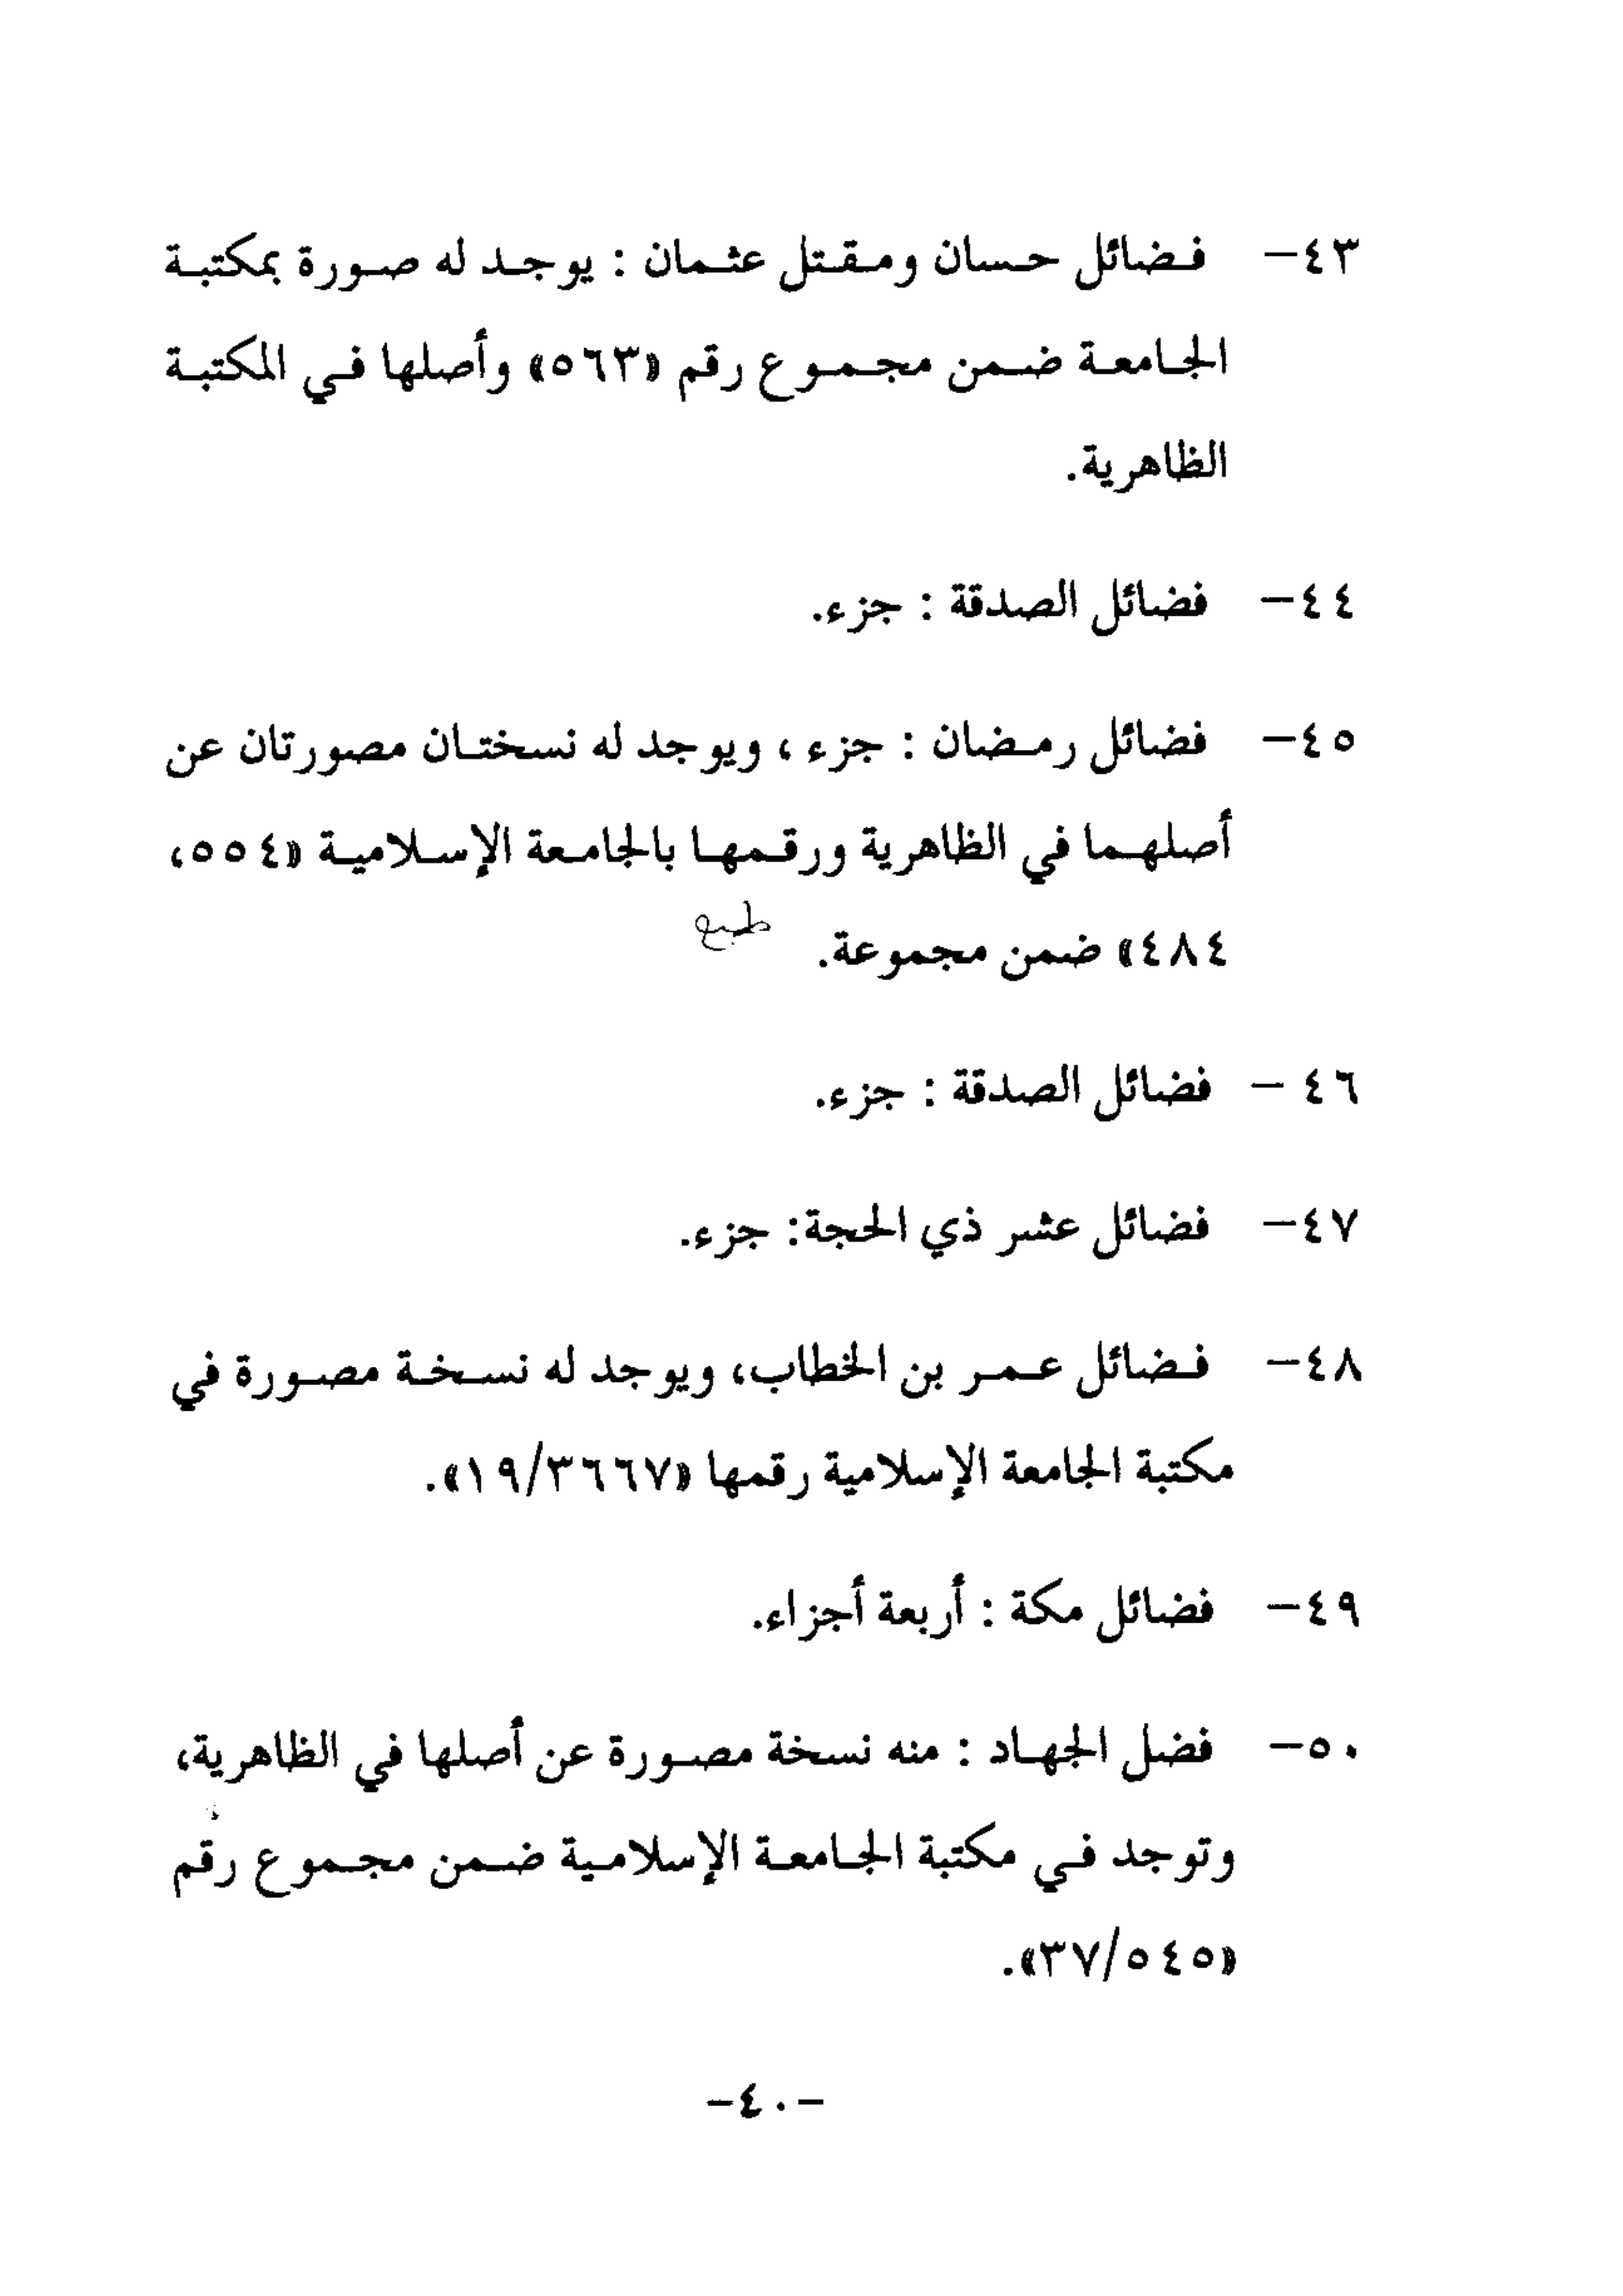 ٤٣- فضائل حسان ومقتل عثمان : يوجد له صورة بمكتبة
الجامعة ضمن مجموع رقم «٥٦٣» وأصلها في المكتبة
الظاهرية.
٤٤- فضائل الصدقة : جزء.
٤٥- فضائل رمضان : جزء ، ويوجد له نسختان مصورتان عن
أصلهما في الظاهرية ورقمها بالجامعة الإسلامية «٥٥٤،
٤٨٤» ضمن مجموعة. طبع
٤٦ - فضائل الصدقة : جزء.
٤٧- فضائل عشر ذي الحجة: جزء.
٤٨- فضائل عمر بن الخطاب، ويوجد له نسخة مصورة في
مكتبة الجامعة الإسلامية رقمها «١٩/٣٦٦٧».
٤٩- فضائل مكة : أربعة أجزاء.
٥٠- فضل الجهاد : منه نسخة مصورة عن أصلها في الظاهرية،
وتوجد في مكتبة الجامعة الإسلامية ضمن مجموع رقم
«٣٧/٥٤٥».
-٤٠-